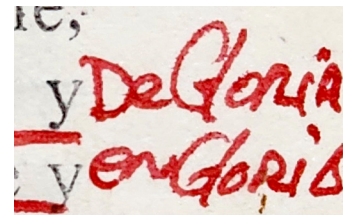 y De Gloria
y en Gloria